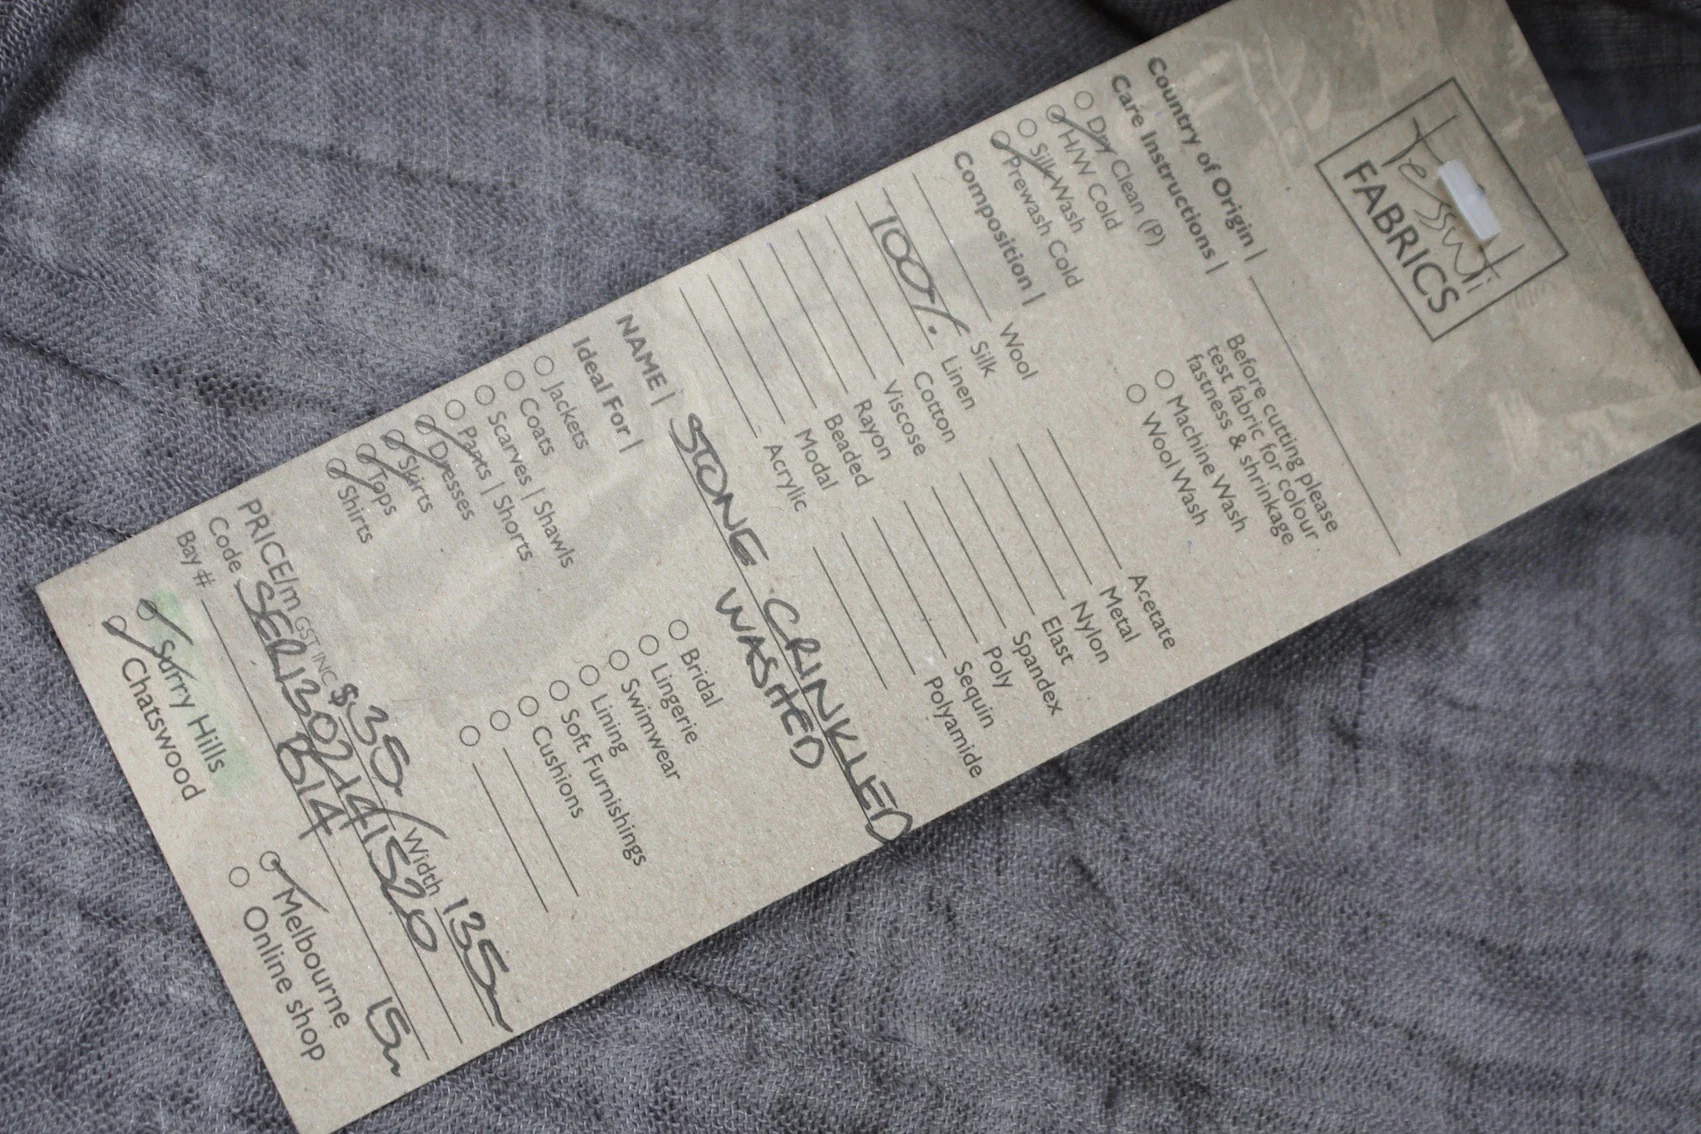 Tessuti
FABRICS
Country of Origin |
Care Instructions |
Dry Clean (P)
H/W Cold
Silk Wash
Prewash Cold
Before cutting please
test fabric for colour
fastness & shrinkage
Machine Wash
Wool Wash
Composition |
Wool
Silk
100% Linen
Cotton
Viscose
Rayon
Beaded
Modal
Acrylic
Acetate
Metal
Nylon
Elast
Spandex
Poly
Sequin
Polyamide
NAME | STONE CRINKLED
WASHED
Ideal For |
Jackets
Coats
Scarves | Shawls
Pants | Shorts
Dresses
Skirts
Tops
Shirts
Bridal
Lingerie
Swimwear
Lining
Soft Furnishings
Cushions
PRICE/m GST INC $35/ Width 135
Code SER1302141520
Bay # B14 15m
Surry Hills
Chatswood
Melbourne
Online shop